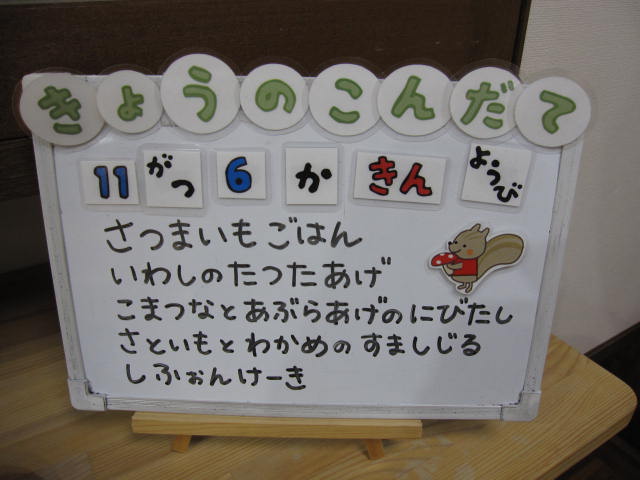 きょうのこんだて
11 がつ 6 か きん ようび
さつまいもごはん
いわしのたつたあげ
こまつなとあぶらあげのにびたし
さといもとわかめのすましじる
しふぉんけーき